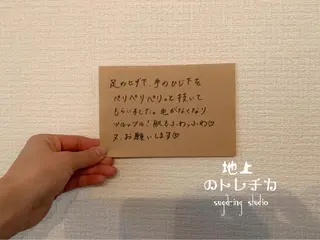 足のヒザ下、手のひじ下を
ペリペリペリっと抜いて
もらいました。毛がなくなり
ツルッツル!肌もふわっふわ♡
又、お願いします♡
地上
のトレチカ
sugd-ing studio